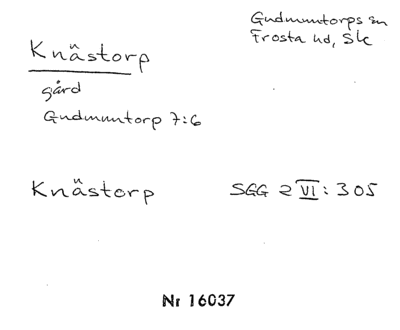 Gudmuntorps sn
Frosta hd, Sk
Knästorp
gård
Gudmuntorp 7:6
Knästorp
SGG 2 VI: 305
Nr 16037